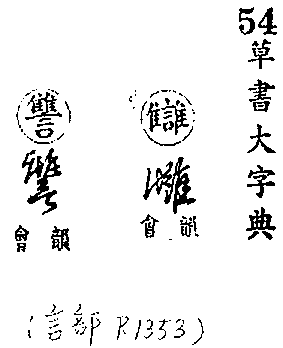 54
草書大字典
讎
讎
韻會
讐
讐
韻會
(言部 P.1353)